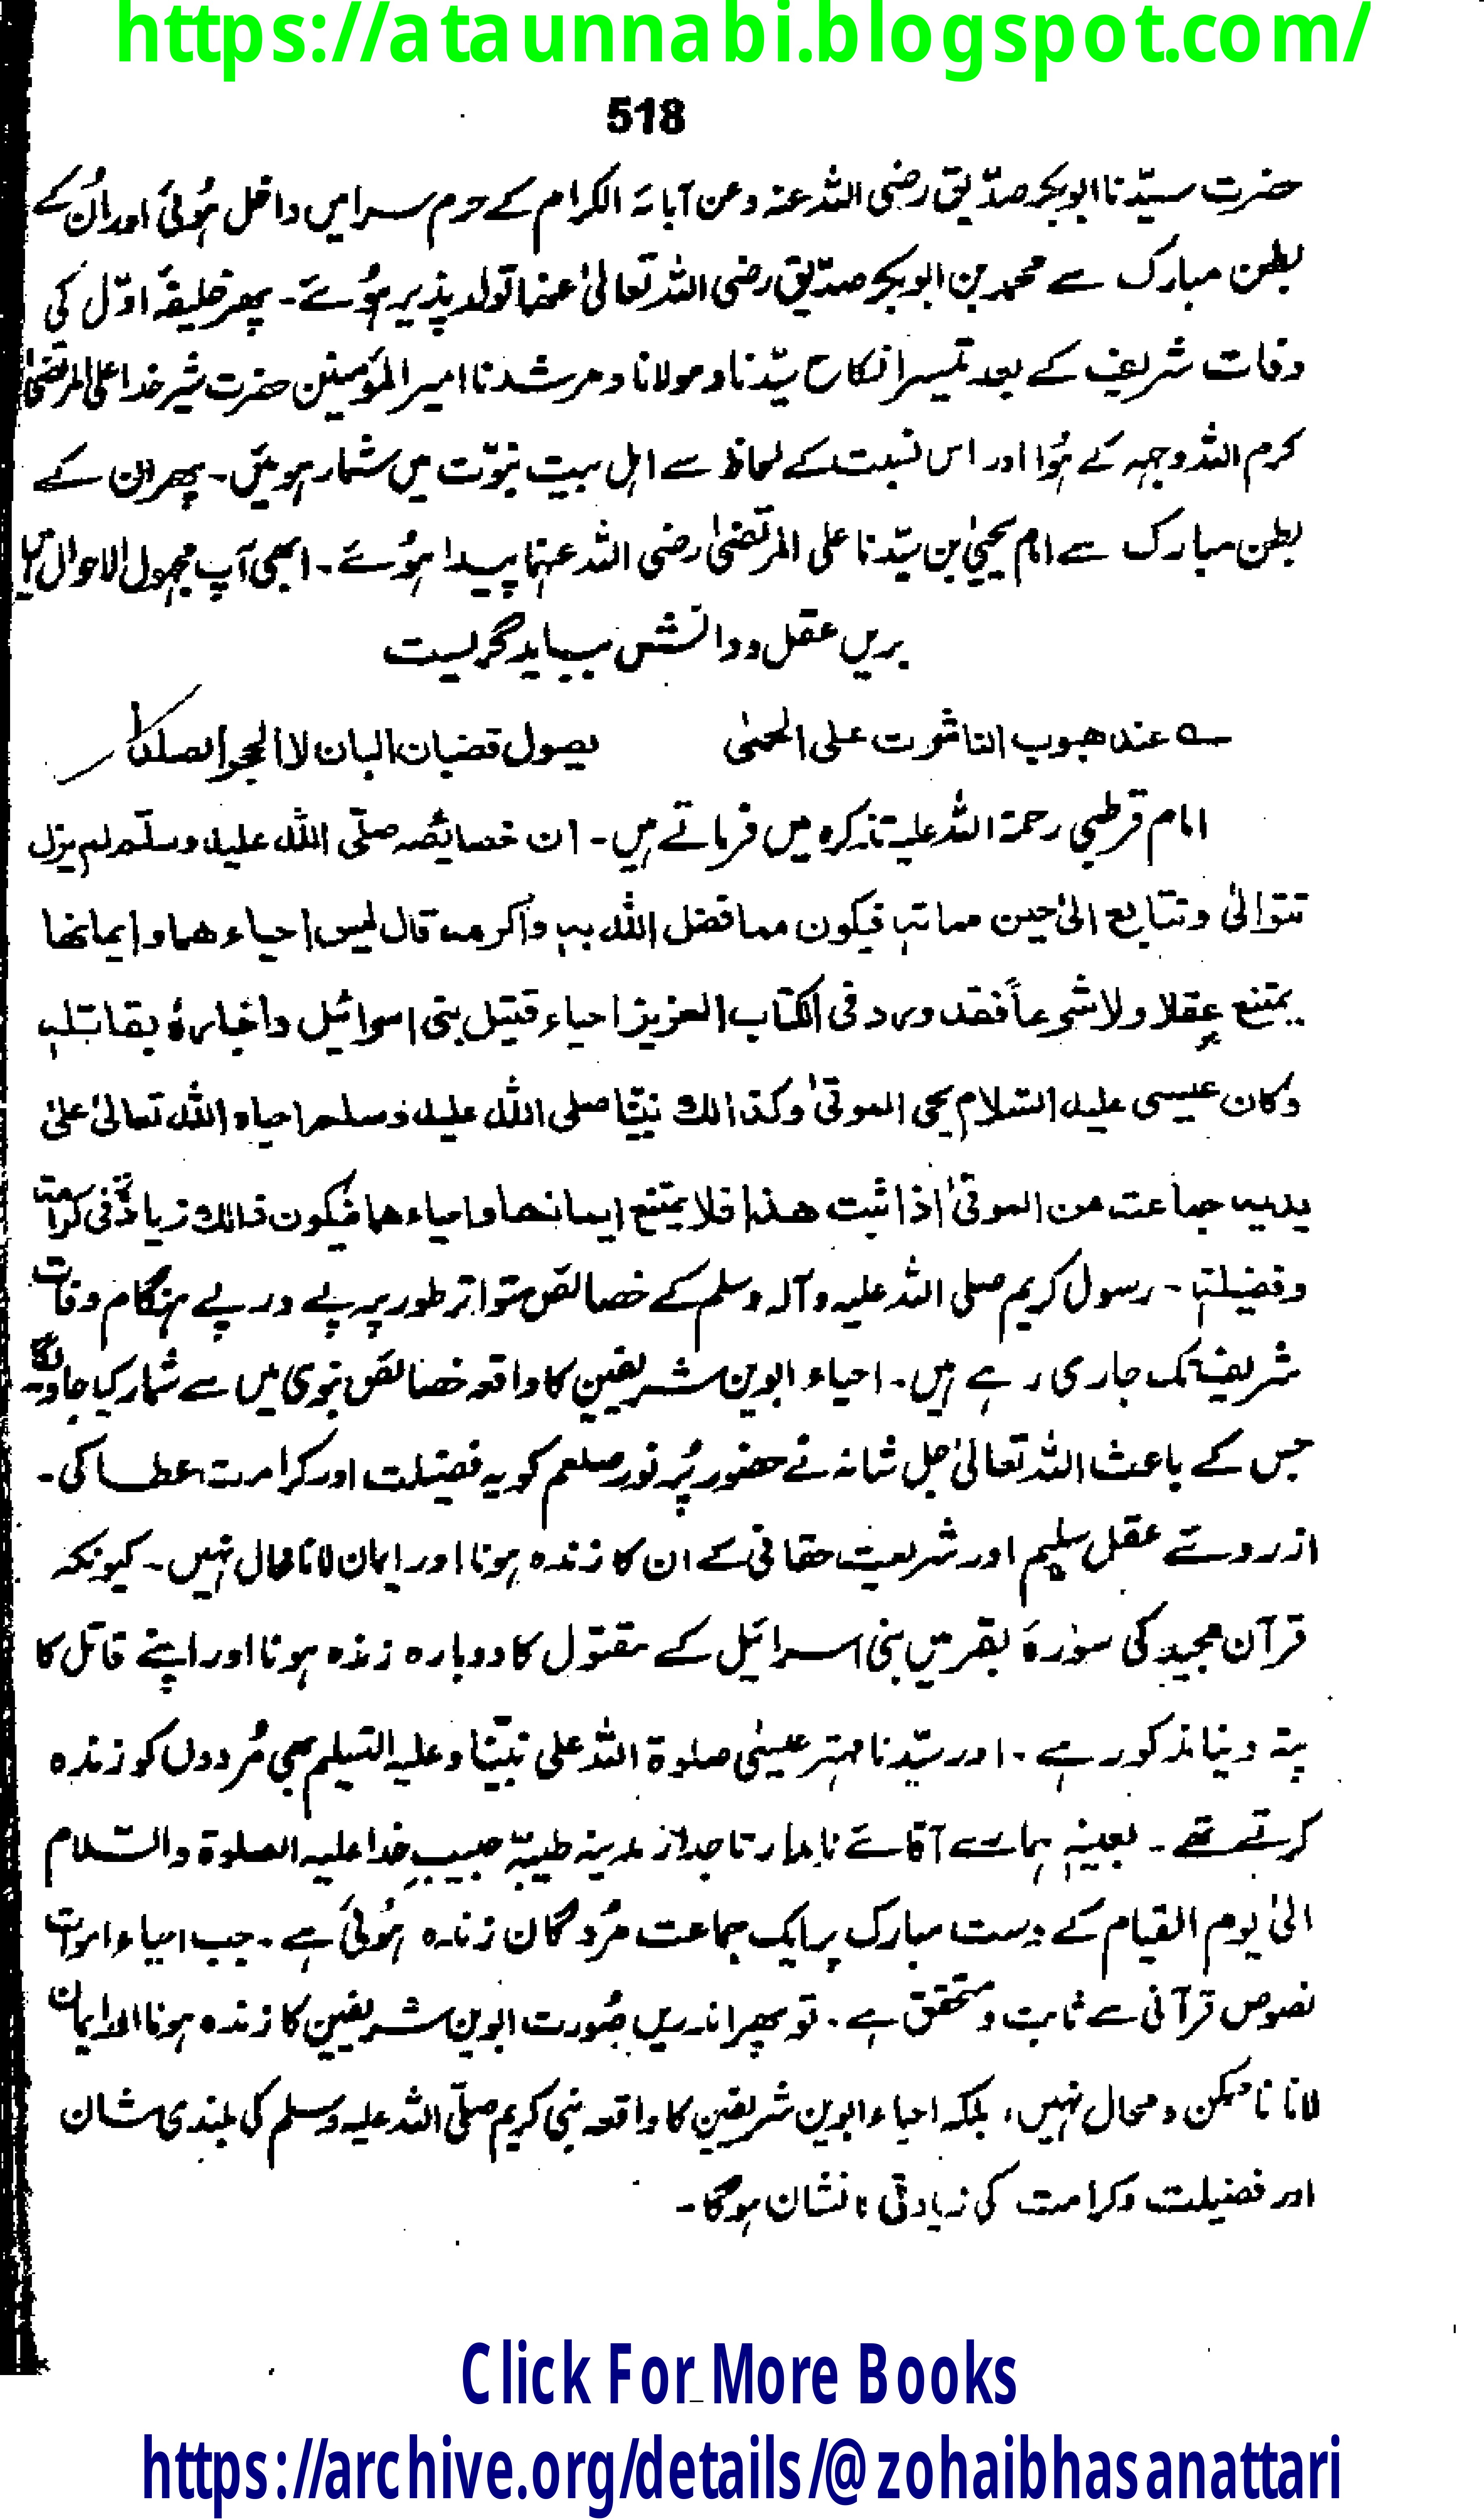 https://ataunnabi.blogspot.com/
518
حضرت سیّدنا ابوبکر صدّیق رضی اللہ عنہ وعن آبائہ الکرام کے حرم سرا میں داخل ہُوئی اور اُن کے
بطن مبارک سے محمد بن ابوبکر صدّیق رضی اللہ تعالیٰ عنھا تولد پذیر ہُوئے۔ پھر خلیفۂ اوّل کی
وفات شریف کے بعد تیسرا نکاح سیّدنا ومولانا ومرشدنا امیر المؤمنین حضرت شیر خدا علی المرتضیٰ
کرم اللہ وجہہ کے ہُوا اور اس نسبت کے لحاظ سے اہل بیت نبوّت میں شمار ہوئیں۔ پھر ان کے
بطن مبارک سے امام یحییٰ بن سیّدنا علی المرتضیٰ رضی اللہ عنہما پیدا ہُوئے۔ ابھی آپ مجہول الاحوال ہیں
بریں عقل ودانش بباید گریست
عند ھبوب الناشرت علی الحمیٰ یصول قضبان البان لا الحجر الصلدا
امام قرطبی رحمۃ اللہ علیہ تذکرہ میں فرماتے ہیں۔ ان خصائصہ صلّی اللہ علیہ وسلّم لم یزل
تتوالیٰ وتتابع الیٰ حین مماتہٖ فیکون مما فضل اللہ بہٖ واکرمہ قال لیس احیاء ھما وایمانھا
یمتنع عقلا ولا شرعاً فقد ورد فی الکتاب العزیز احیاء قتیل بنی اسرائیل واخبارہٗ بقاتلہٖ
وکان عیسی علیہ السّلام یحی الموتیٰ وکذالک نبیّنا صلی اللہ علیہ وسلم احیاہ اللہ تعالیٰ علیٰ
یدیہ جماعت من الموتیٰ اذا ثبت ھذا فلا یمتنع ایمانھا واحیاء ھما فیکون ذالک زیادۃً فی کرامتہٖ
وفضیلتہٖ۔ رسول کریم صلی اللہ علیہ وآلہ وسلم کے خصائص متواتر طور پر پے در پے ہنگام وفات
شریف تک جاری رہے ہیں۔ احیاء ابوین شریفین کا واقعہ خصائص نبوی میں سے شمار کیا جاوے گا
جس کے باعث اللہ تعالیٰ جل شانہ نے حضور پُرنور صلعم کو یہ فضیلت اور کرامت عطا کی۔
ازروئے عقل سلیم اور شریعت حقانی کے ان کا زندہ ہونا اور ایمان لانا محال نہیں۔ کیونکہ
قرآن مجید کی سورۂ بقر میں بنی اسرائیل کے مقتول کا دوبارہ زندہ ہونا اور اپنے قاتل کا
پتہ دینا مذکور ہے۔ اور سیّدنا مہتر عیسیٰ صلوۃ اللہ علی نبیّنا وعلیہ التسلیم بھی مُردوں کو زندہ
کرتے تھے۔ بعینہٖ ہمارے آقائے نامدار تاجدار مدینہ طیبّہ حبیبِ خدا علیہ الصلوۃ والسّلام
الیٰ یوم القیام کے دست مبارک پر ایک جماعت مُردگان زندہ ہُوئی ہے۔ جب احیاء اموات
نصوص قرآنی سے ثابت ومتحقق ہے۔ تو پھر اندریں صُورت ابوین شریفین کا زندہ ہونا اور ایمان
لانا ناممکن ومحال نہیں، بلکہ احیاء ابوین شریفین کا واقعہ نبی کریم صلّی اللہ علیہ وسلم کی بلندی شان
اور فضیلت وکرامت کی زیادتی نشان ہوگا۔
Click For More Books
https://archive.org/details/@zohaibhasanattari